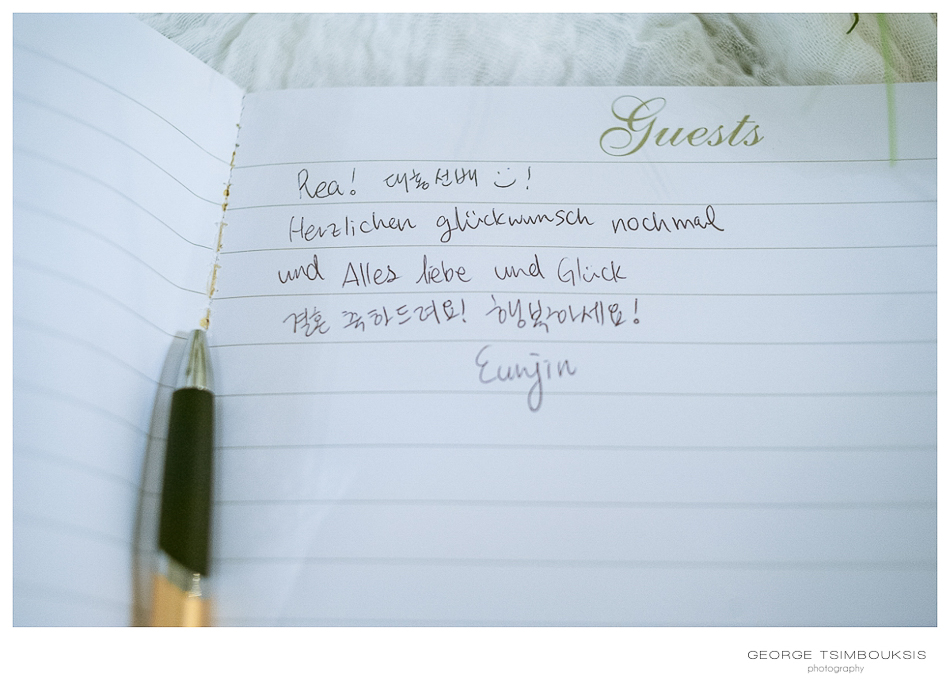 Guests
Rea! 대홍선배 !
Herzlichen glückwunsch nochmal
und Alles liebe und Glück
결혼 축하드려요! 행복하세요!
Eunjin
GEORGE TSIMBOUKSIS
photography